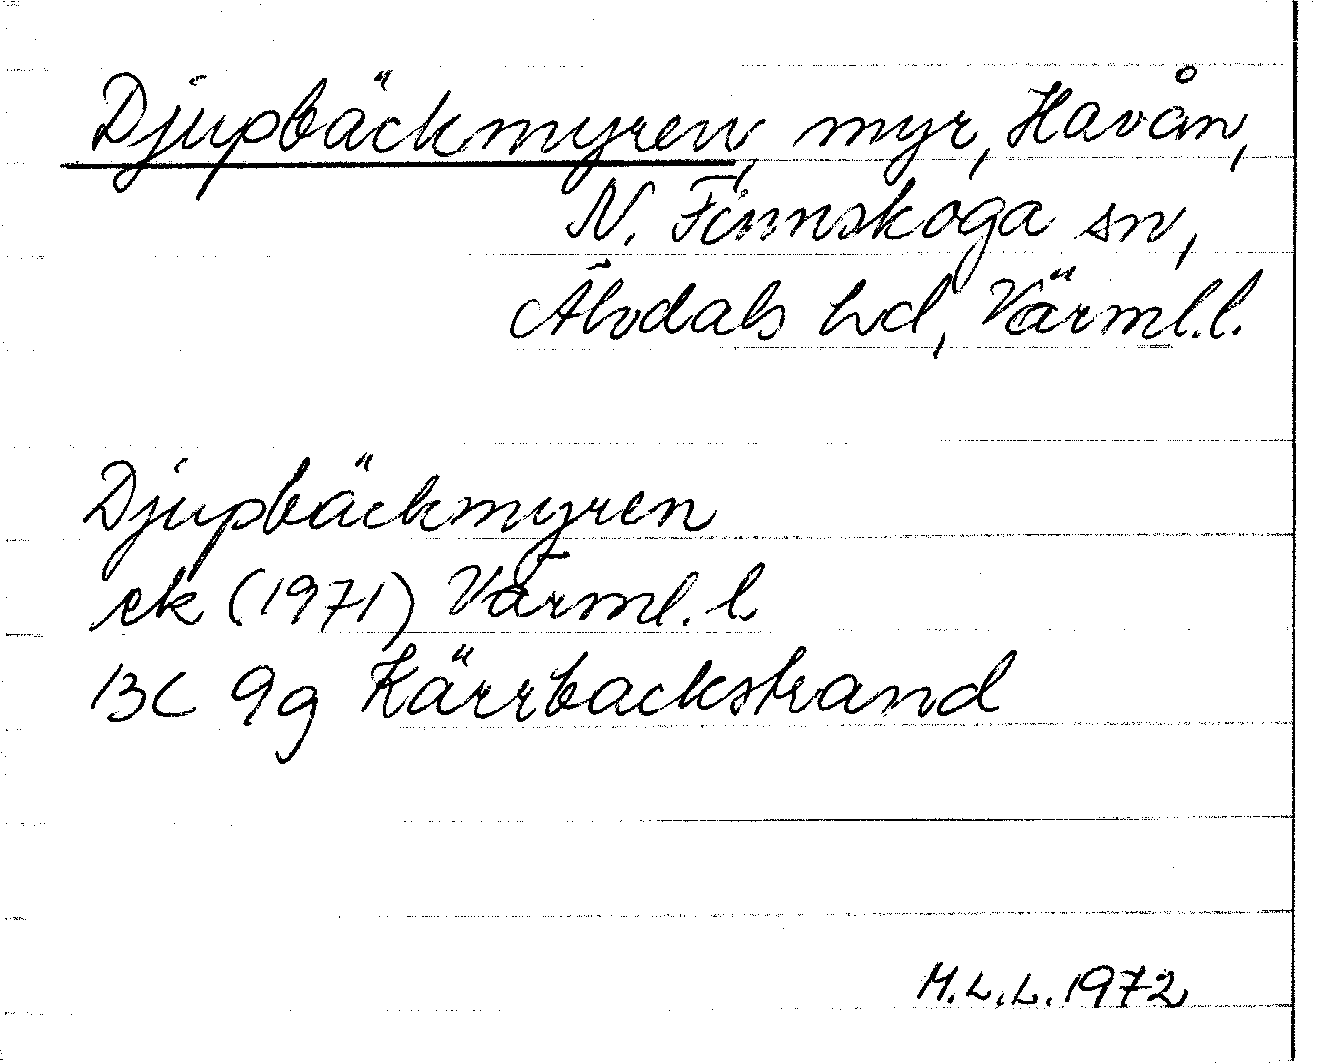 Djupbäckmyren, myr, Havån,
N. Finnskoga sn,
Älvdals hd, Värml.l.
Djupbäckmyren
ek (1971) Värml. l
13C 9g Kärrbackstrand
M.L.L. 1972